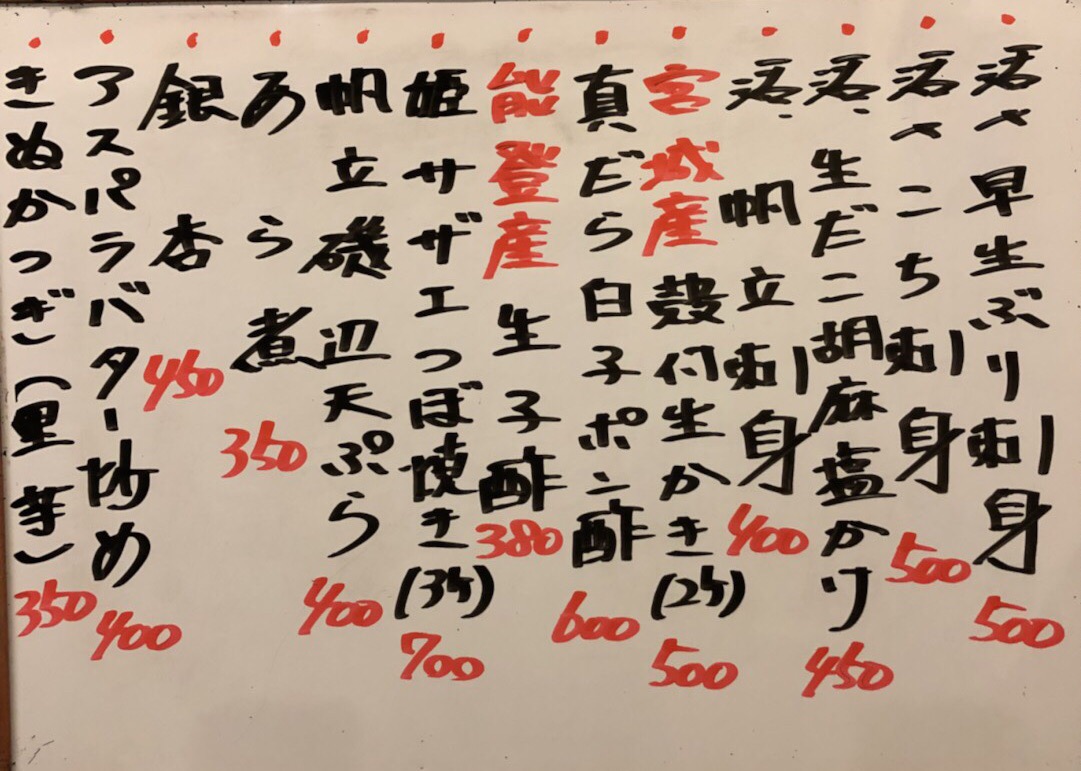 活〆早生ぶり刺身 500
活〆こち刺身 500
活、生だこ胡麻塩かけ 450
活、帆立刺身 400
宮城産 殻付生かき(2ケ) 500
真だら白子ポン酢 600
能登産 生子酢 380
姫サザエつぼ焼き(3ケ) 700
帆立磯辺天ぷら 400
あら煮 350
銀杏 450
アスパラバター炒め 400
きぬかつぎ(里芋) 350